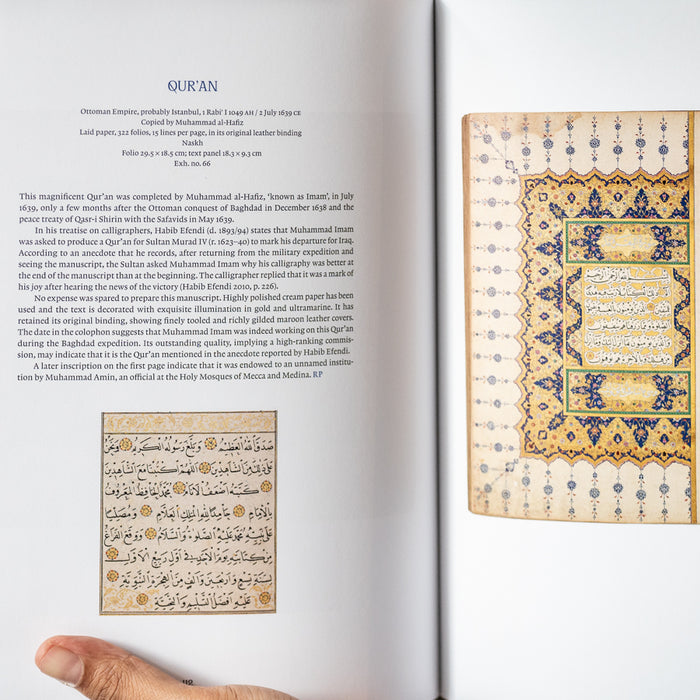 QUR'AN
Ottoman Empire, probably Istanbul, 1 Rabi' I 1049 AH / 2 July 1639 CE
Copied by Muhammad al-Hafiz
Laid paper, 322 folios, 15 lines per page, in its original leather binding
Naskh
Folio 29.5 × 18.5 cm; text panel 18.3 × 9.3 cm
Exh. no. 66
This magnificent Qur'an was completed by Muhammad al-Hafiz, 'known as Imam', in July
1639, only a few months after the Ottoman conquest of Baghdad in December 1638 and the
peace treaty of Qasr-i Shirin with the Safavids in May 1639.
In his treatise on calligraphers, Habib Efendi (d. 1893/94) states that Muhammad Imam
was asked to produce a Qur'an for Sultan Murad IV (r. 1623–40) to mark his departure for Iraq.
According to an anecdote that he records, after returning from the military expedition and
seeing the manuscript, the Sultan asked Muhammad Imam why his calligraphy was better at
the end of the manuscript than at the beginning. The calligrapher replied that it was a mark of
his joy after hearing the news of the victory (Habib Efendi 2010, p. 226).
No expense was spared to prepare this manuscript. Highly polished cream paper has been
used and the text is decorated with exquisite illumination in gold and ultramarine. It has
retained its original binding, showing finely tooled and richly gilded maroon leather covers.
The date in the colophon suggests that Muhammad Imam was indeed working on this Qur'an
during the Baghdad expedition. Its outstanding quality, implying a high-ranking commis-
sion, may indicate that it is the Qur'an mentioned in the anecdote reported by Habib Efendi.
A later inscription on the first page indicate that it was endowed to an unnamed institu-
tion by Muhammad Amin, an official at the Holy Mosques of Mecca and Medina. RP
صدق الله العظيم وبلغ رسوله الكريم ونحن
على ذلك من الشاهدين اللهم اكتبنا مع الشاهدين
كتبه اضعف الانام محمد الحافظ المعروف
بالامام حامدا لله الملك العلام ومصليا
على نبيه محمد عليه الصلوة والسلام ووقع الفراغ
من كتابته يوم الاول ربيع الاول
سنة تسع واربعين والف من الهجرة النبوية
عليه افضل التسليم والتحية